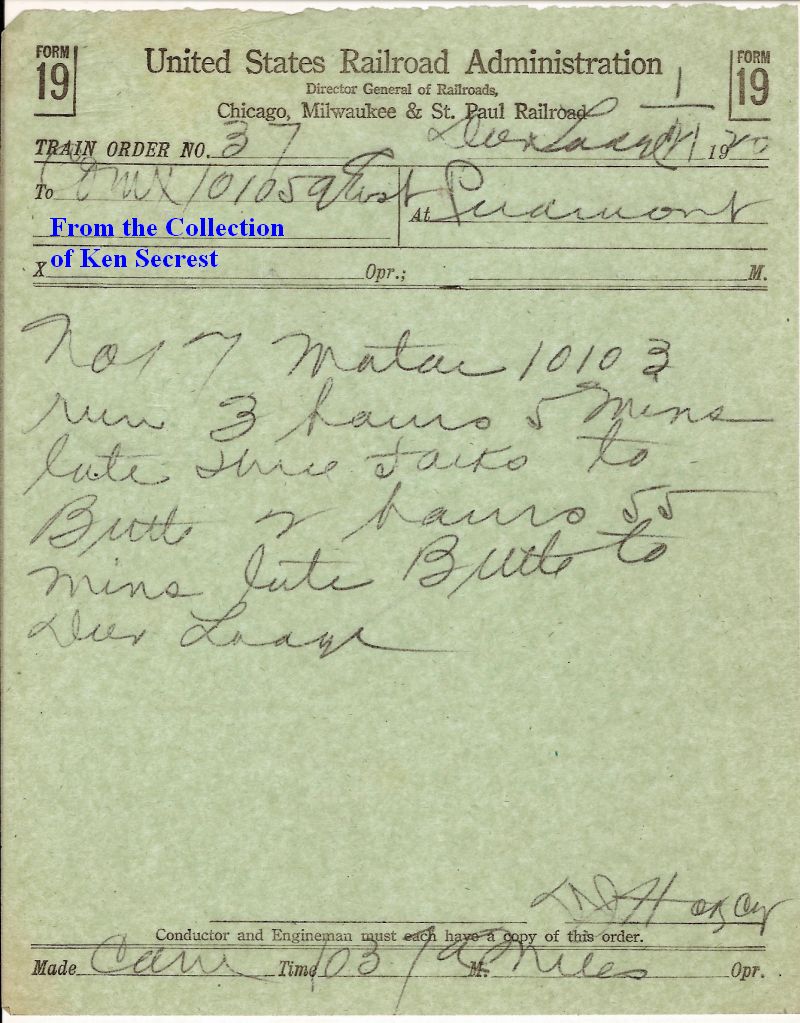 FORM 19
United States Railroad Administration
FORM 19
Director General of Railroads,
Chicago, Milwaukee & St. Paul Railroad
TRAIN ORDER NO. 37 Deer Lodge 1/21 1920
To C&E MX 10105 East At Piedmont
From the Collection
of Ken Secrest
X Opr.; M.
No 17 Motor 10103
run 3 hours 5 mins
late Three Forks to
Butte 2 hours 55
mins late Butte to
Deer Lodge
Conductor and Engineman must each have a copy of this order.
Made Com Time 103 A M. Miles Opr.